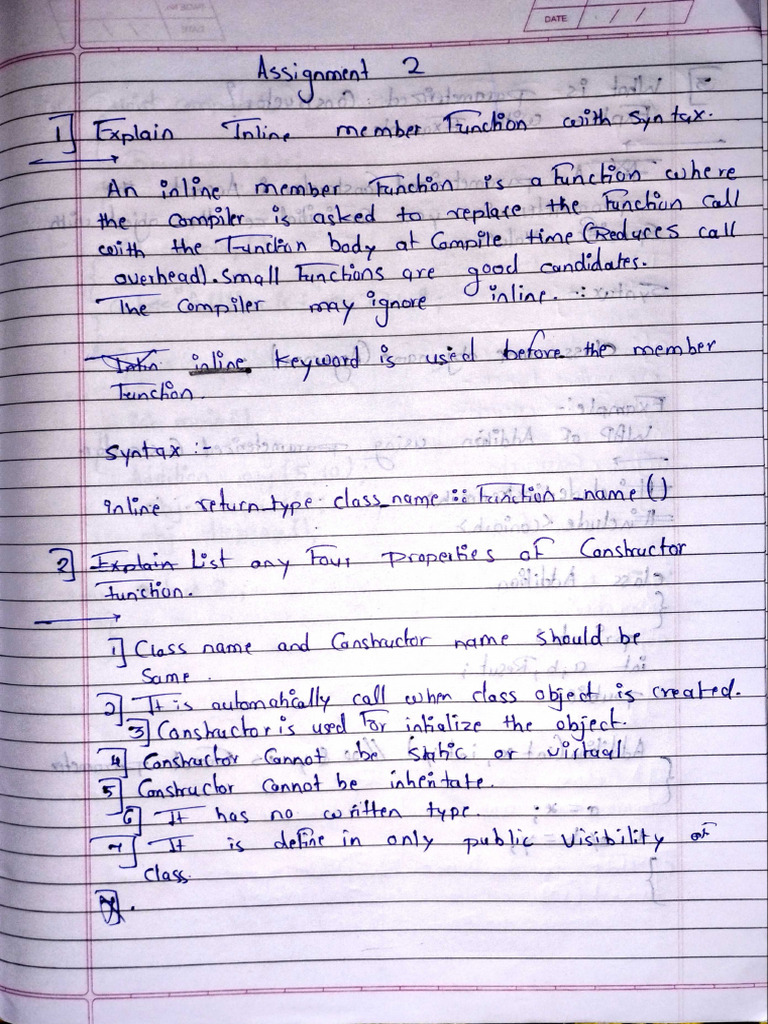 DATE / /
Assignment 2
1] Explain Inline member Function with Syntax.
An inline member Function is a Function where
the compiler is asked to replace the Function call
with the Function body at Compile time (Reduces call
overhead). small Functions are good candidates.
The compiler may ignore inline.
inline keyword is used before the member
Function.
Syntax :-
inline return_type class_name :: Function_name ()
2] Explain List any Four properties of Constructor
function.
1] Class name and Constructor name should be
Same.
2] It is automatically call when class object is created.
3] Constructor is used For intialize the object.
4] Constructor Cannot be static or virtual
5] Constructor cannot be inheritate.
6] It has no written type.
7] It is define in only public visibility of
class.